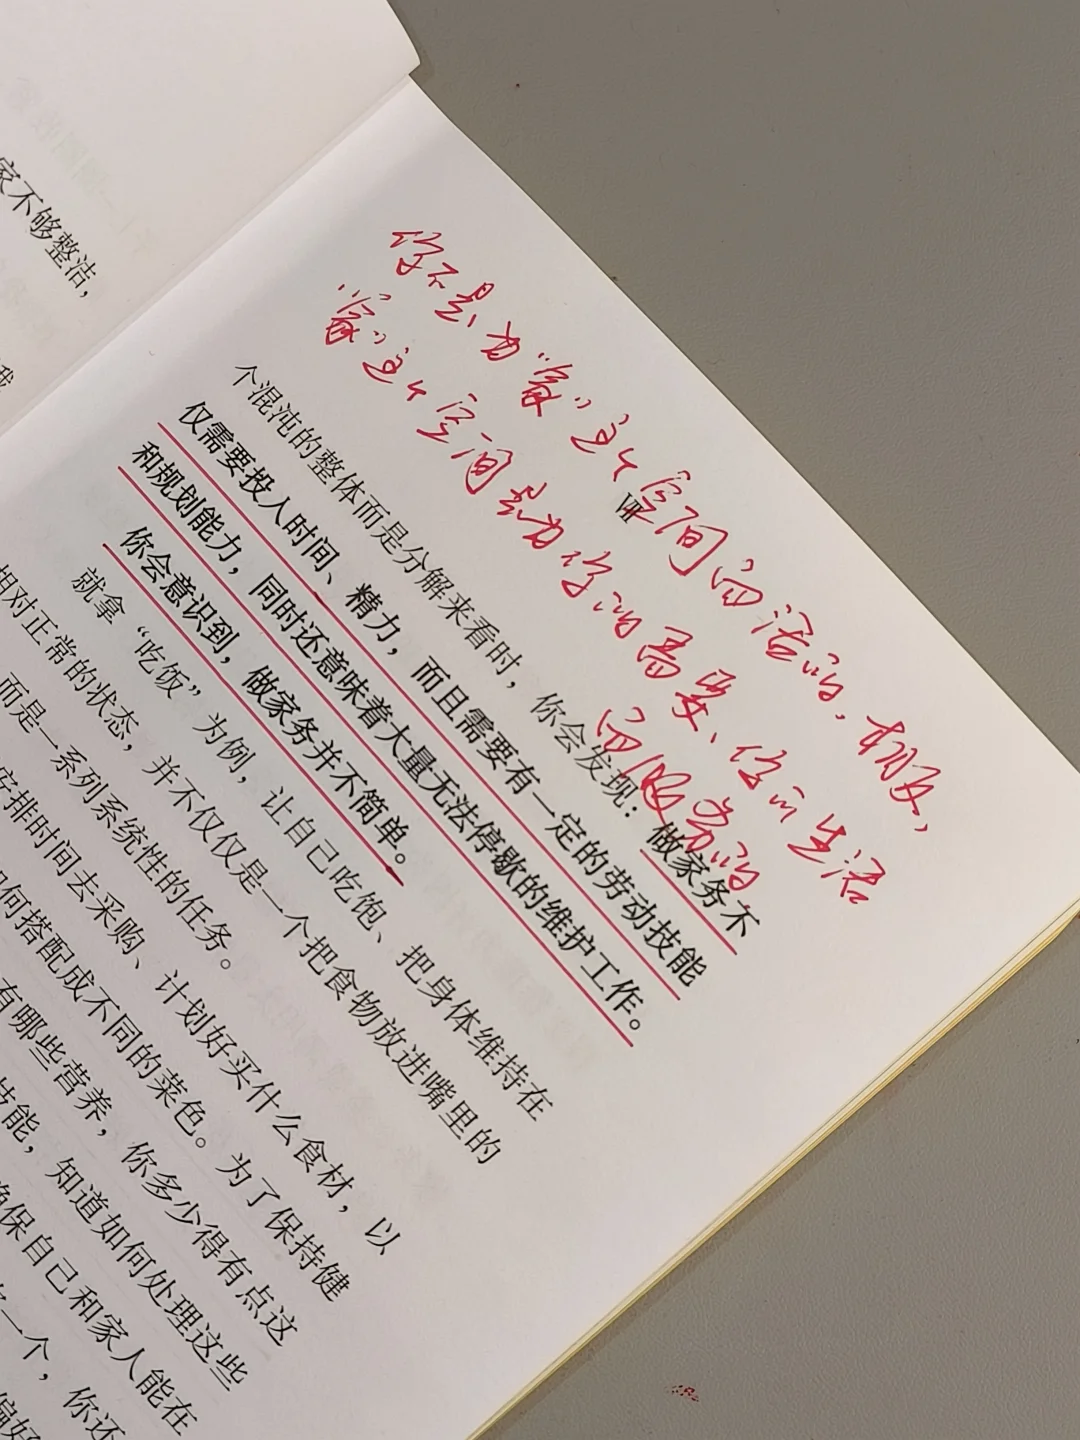 家不够整洁，
我
你不是为“家”这个空间而活的，相反，
“家”这个空间是为你的需要、你的生活
而服务的
VIII
个混沌的整体而是分解来看时，你会发现：做家务不
仅需要投入时间、精力，而且需要有一定的劳动技能
和规划能力，同时还意味着大量无法停歇的维护工作。
你会意识到，做家务并不简单。
就拿“吃饭”为例，让自己吃饱、把身体维持在
相对正常的状态，并不仅仅是一个把食物放进嘴里的
而是一系列系统性的任务。
安排时间去采购、计划好买什么食材，以
如何搭配成不同的菜色。为了保持健
有哪些营养，你多少得有点这
技能，知道如何处理这些
确保自己和家人能在
一个，你还
偏好